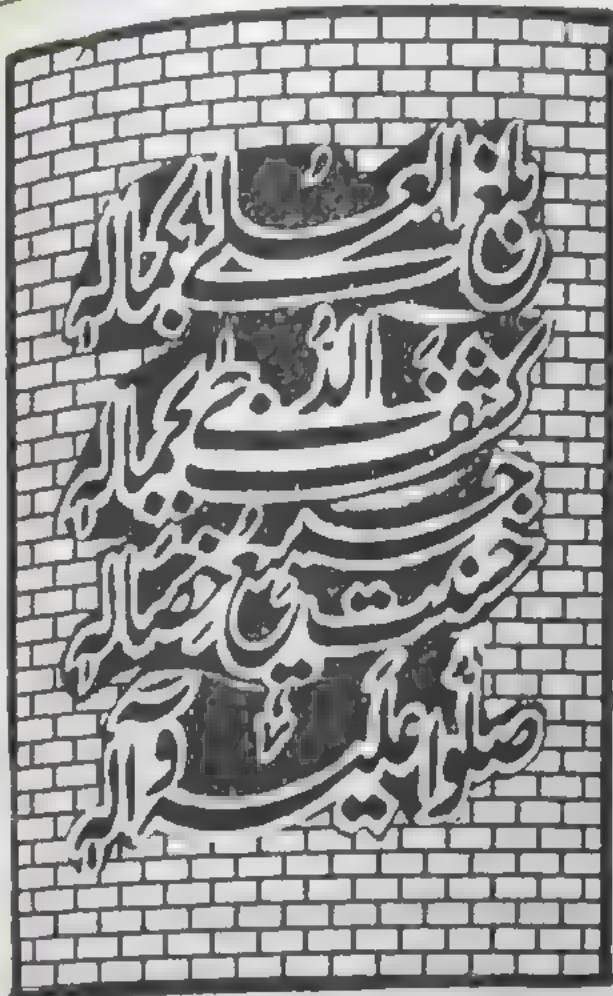 بلغ العلےٰ بکمالہ
کشف الدُّجےٰ بجمالہ
حسنت جمیع خصالہ
صلّوا علیہ وآلہ